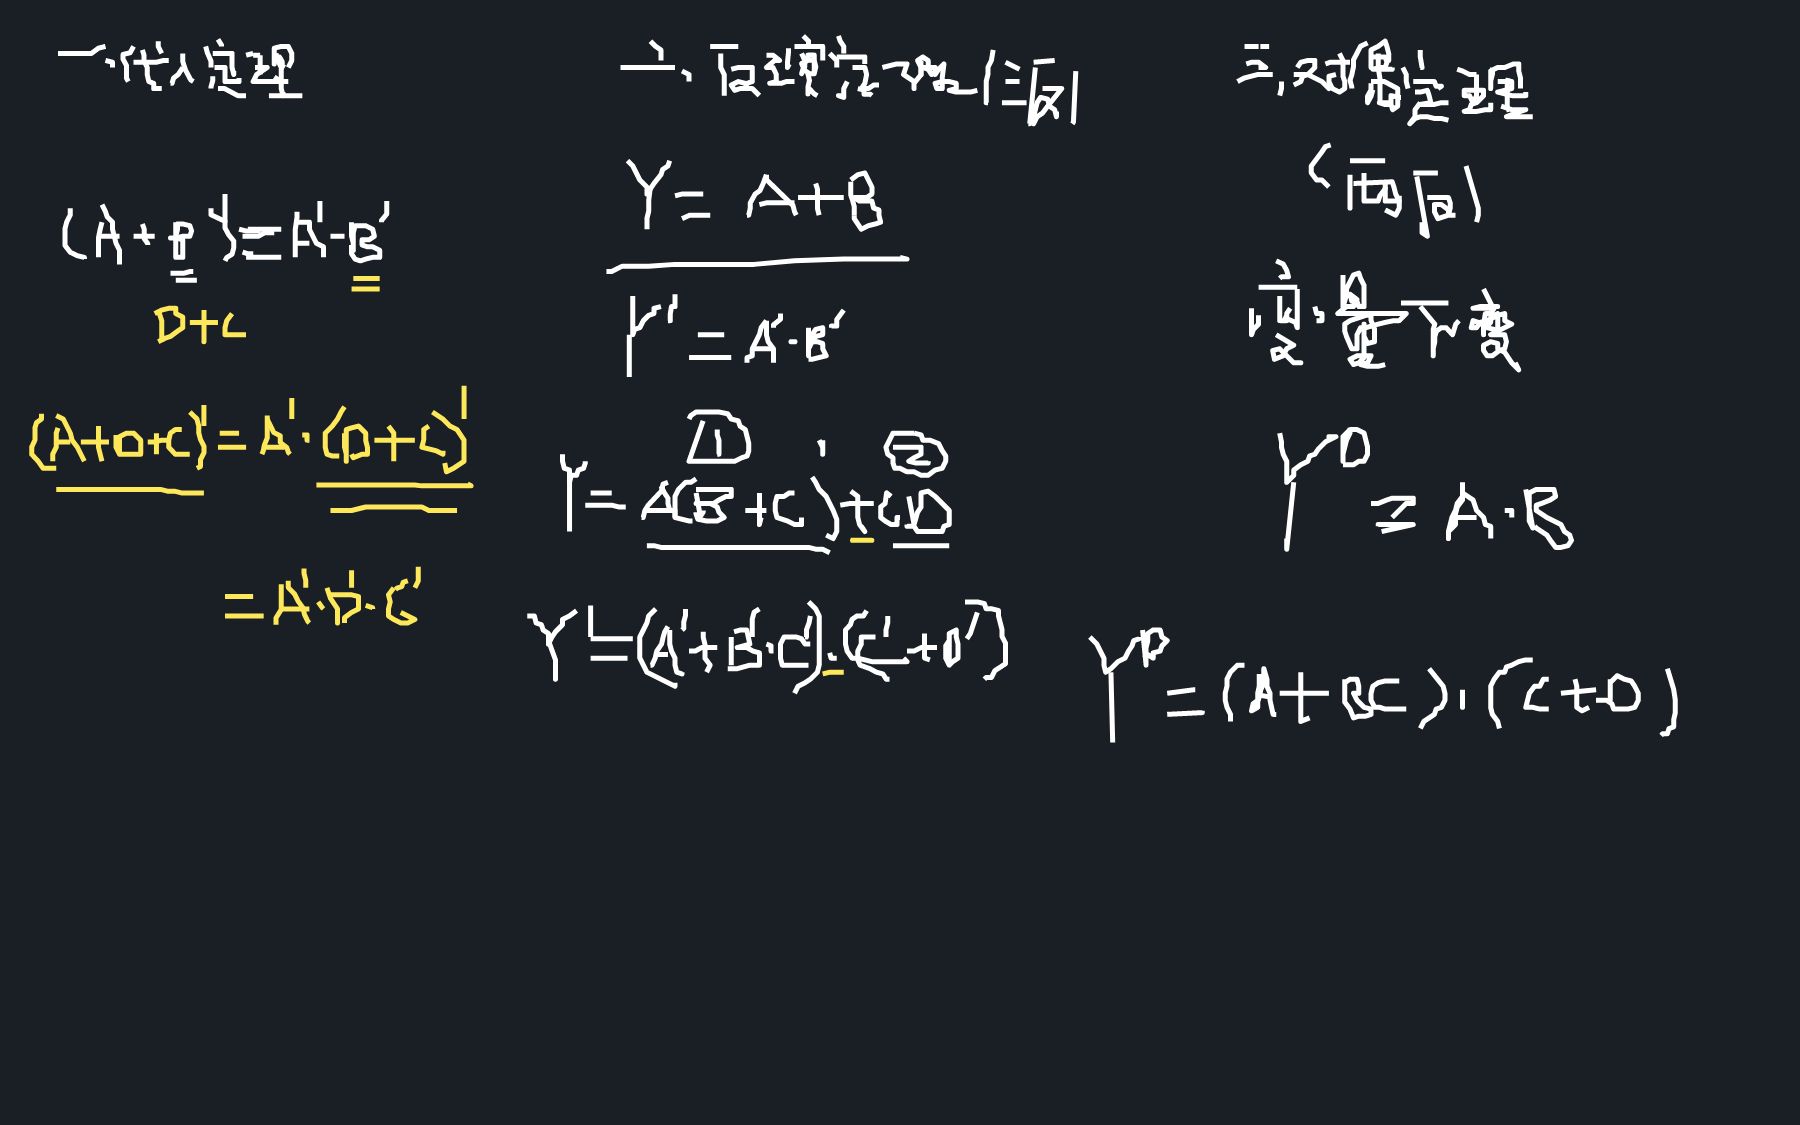 一.代入定理
(A+B)'=A'·B'
D+C
(A+D+C)'=A'·(D+C)'
=A'·D'·C'
二、反演定理(三反)
Y=A+B
Y'=A'·B'
① ②
Y=A(B+C)+CD
Y'=(A'+B'·C')·(C'+D')
三,对偶定理
(两反)
变量不变
Y^D
=A·B
Y^D
=(A+BC)·(C+D)